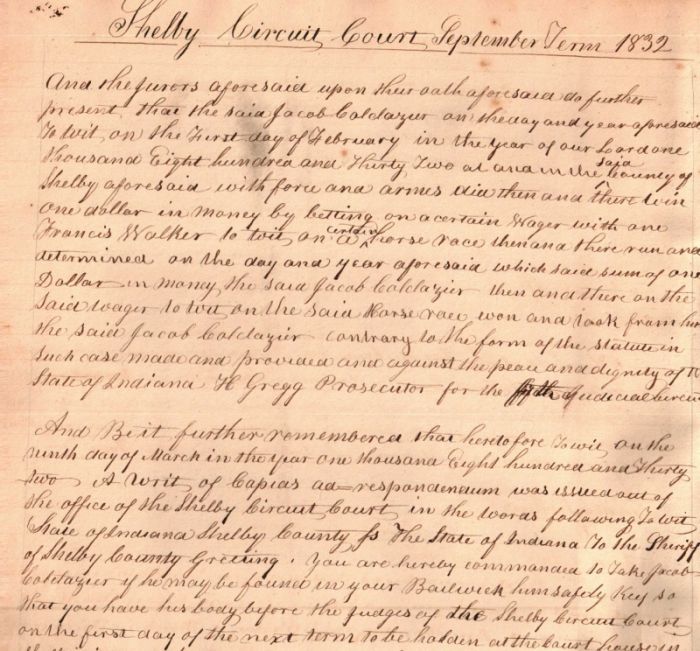 Shelby Circuit Court September Term 1832
And the jurors aforesaid upon their oath aforesaid do further
present that the said Jacob Coldazier on the day and year aforesaid
To wit, on the First day of February in the year of our Lord one
thousand Eight hundred and Thirty Two at and in the said County of
Shelby aforesaid with force and armes did then and there win
one dollar in money by betting on a certain Wager with one
Francis Walker to wit, on a certain Horse race then and there run and
determined on the day and year aforesaid which said sum of one
Dollar in money the said Jacob Coldazier then and there on the
said wager to wit on the said Horse race won and took from
the said Jacob Coldazier contrary to the form of the statute in
such case made and provided and against the peace and dignity of
State of Indiana H Gregg Prosecutor for the Judicial
And Be it further remembered that heretofore To wit, on the
ninth day of March in the year one thousand Eight hundred and Thirty
two A Writ of Capias ad=respondendum was issued out of
the office of the Shelby Circuit Court, in the words following To wit
State of Indiana Shelby County Ss The State of Indiana To the Sheriff
of Shelby County Greeting. You are hereby commanded to Take Jacob
Coldazier if he may be found in your Bailwick him safely Key so
that you have his body before the Judges of the Shelby Circuit Court
on the first day of the next term to be holden at the Court house in